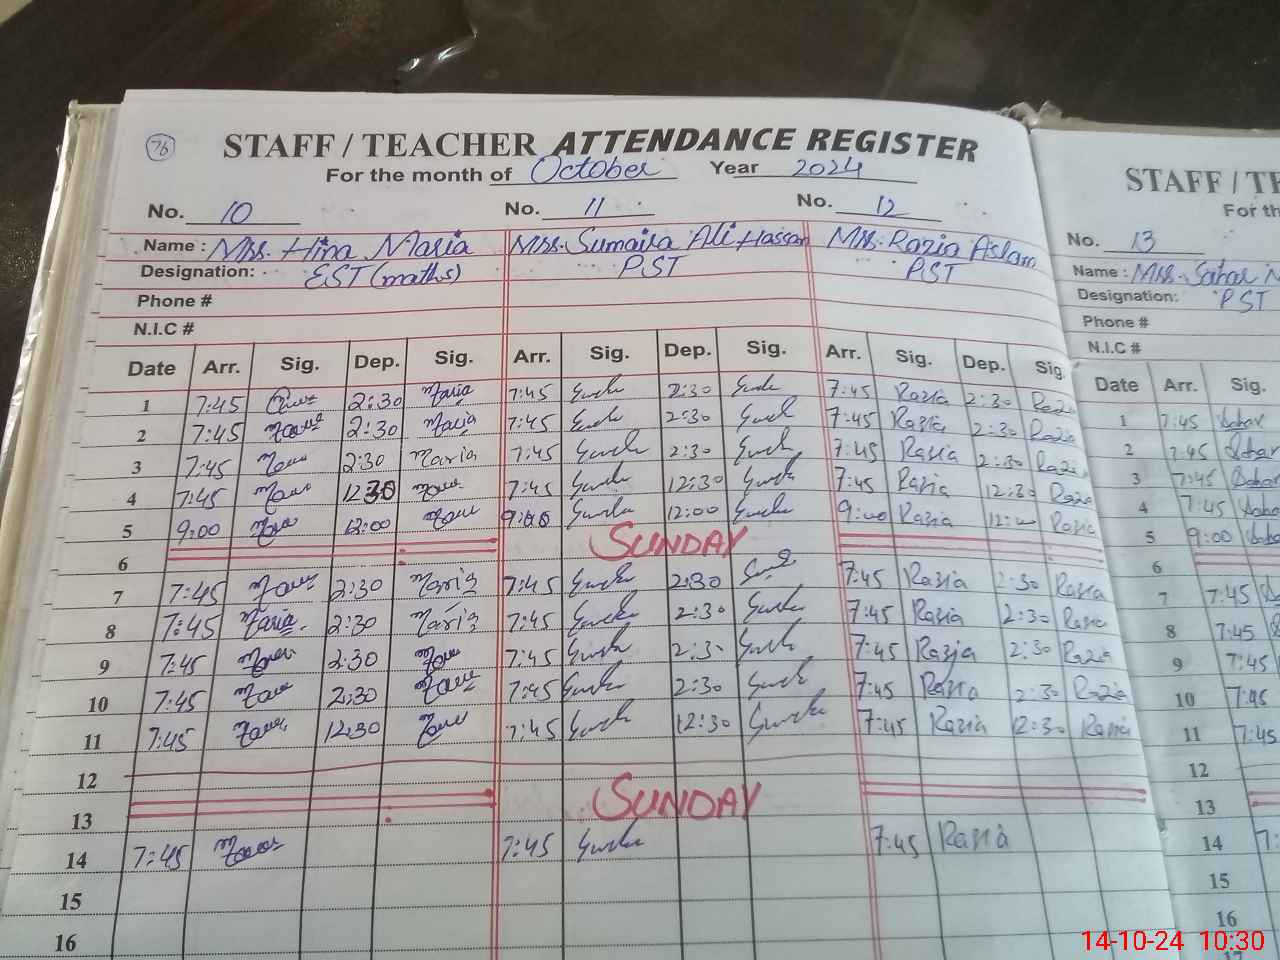 76
STAFF / TEACHER ATTENDANCE REGISTER
For the month of October Year 2024
No. 10 No. 11 No. 12
Name : Miss. Hina Maria Miss. Sumaira Ali Hassan Miss. Razia Aslam
Designation: EST (maths) PST PST
Phone #
N.I.C #
Date Arr. Sig. Dep. Sig. Arr. Sig. Dep. Sig. Arr. Sig. Dep. Sig.
1 7:45 2:30 Maria 7:45 2:30 7:45 Razia 2:30 Razia
2 7:45 2:30 Maria 7:45 2:30 7:45 Razia 2:30 Razia
3 7:45 2:30 Maria 7:45 2:30 7:45 Razia 2:30 Razia
4 7:45 12:30 7:45 12:30 7:45 Razia 12:30 Razia
5 9:00 12:00 9:00 12:00 9:00 Razia 12:00 Razia
6 SUNDAY
7 7:45 2:30 Maria 7:45 2:30 7:45 Razia 2:30 Razia
8 7:45 Maria 2:30 Maria 7:45 2:30 7:45 Razia 2:30 Razia
9 7:45 2:30 7:45 2:30 7:45 Razia 2:30 Razia
10 7:45 2:30 7:45 2:30 7:45 Razia 2:30 Razia
11 7:45 12:30 7:45 12:30 7:45 Razia 12:30 Razia
12
13 SUNDAY
14 7:45 7:45 7:45 Razia
15
16
STAFF / TE
For th
No. 13
Name : Miss. Sahar
Designation: PST
Phone #
N.I.C #
Date Arr. Sig.
1 7:45 Sahar
2 7:45 Sahar
3 7:45 Sahar
4 7:45 Sahar
5 9:00 Sahar
6
7 7:45
8 7:45
9 7:45
10 7:45
11 7:45
12
13
14 7:
15
16
17
14-10-24 10:30